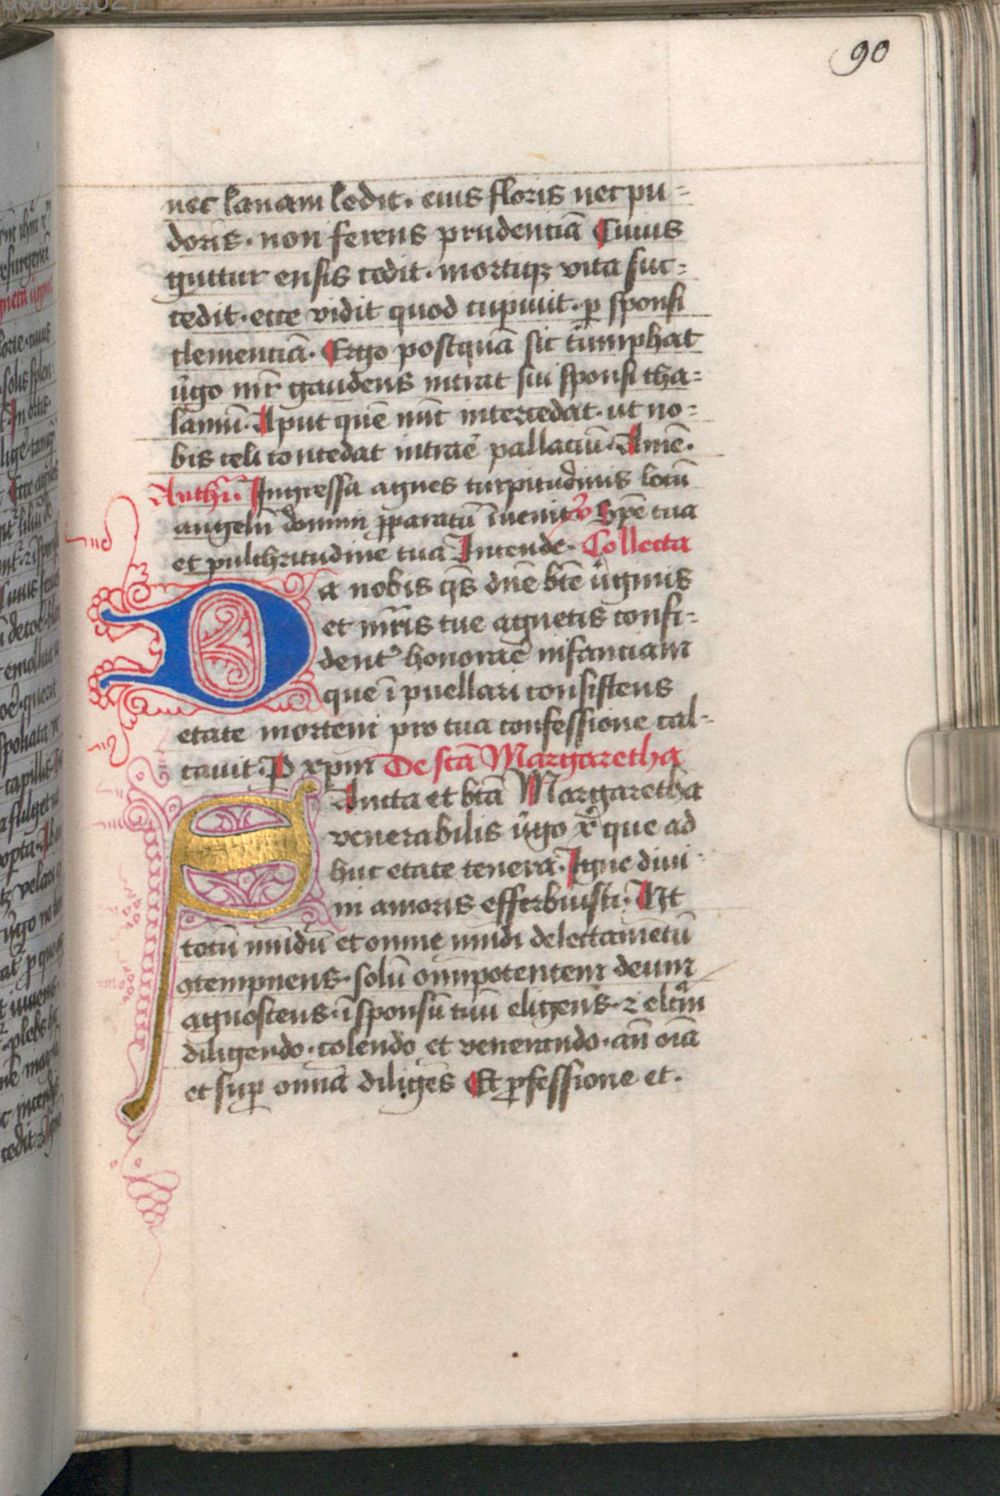 90
nec lanam ledit · eius floris nec pu=
doris · non ferens prudenciā Cuius
guttur ensis cedit · mortiqꝫ vita suc=
cedit · ecce vidit quod cupiuit · ꝑ sponsi
clemenciā · Ergo postquā sic tūmphat
v̄go mr̄ gaudens intrat sui sponsi tha=
lamū · Aput quē nūc intercedat · ut no=
bis celi concedat intrare pallaciū · Amē ·
Anthi᷑ Ingressa agnes turpitudinis locū
angelū domini p̄paratū īuenit ꝟ Spē tua
et pulchritudine tua Intende · Collecta
Da nobis qs̄ dn̄e bt̄e v̄ginis
et mr̄is tue agnetis confi=
dent᷑ honorare infanciam
que ī puellari consistens
etate mortem pro tua confessione cal=
cauit · P xp̄m De sc̄a Margaretha
Sancta et bt̄a Margaretha
venerabilis v̄go xp̄i que ad
huc etate tenera · Igne diui=
ni amoris efferbuisti · Ut
totū mūdū et omne mūdi delectamētū
ꝯtempnens · solū omīpotentem deum
agnoscens · ī sponsū tuū eligens · ⁊ elc̄m
diligendo · colendo et venerando · an̄ oīa
et suꝑ omnia diliges Et ꝓfessione et ·